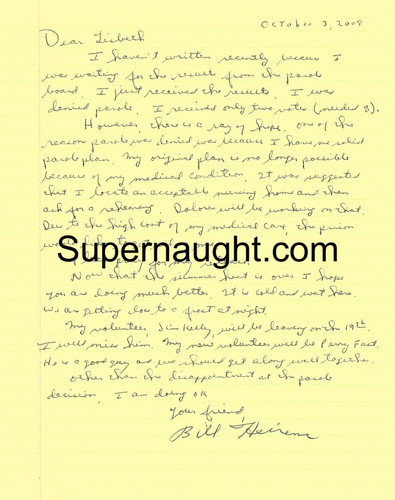 October 3, 2009
Dear Lisbeth
I haven't written recently because I
was waiting for the results from the parole
board. I just received the results. I was
denied parole. I received only two votes (needed 8).
However, there is a ray of hope. One of the
reason parole was denied was because I have no valid
parole plan. My original plan is no longer possible
because of my medical condition. It was suggested
that I locate an acceptable nursing home and then
ask for a rehearing. Dolores will be working on that.
Due to the high cost of my medical care, the prison
Supernaught.com
for my
Now that the summer heat is over I hope
you are doing much better. It is cold and wet here.
We are getting close to a frost at night.
My volunteer, Jim Kelly, will be leaving on the 19th.
I will miss him. My new volunteer will be Perry
He is a good guy and we should get along well together.
Other than the disappointment at the parole
decision, I am doing OK
Your friend,
Bill Heirens